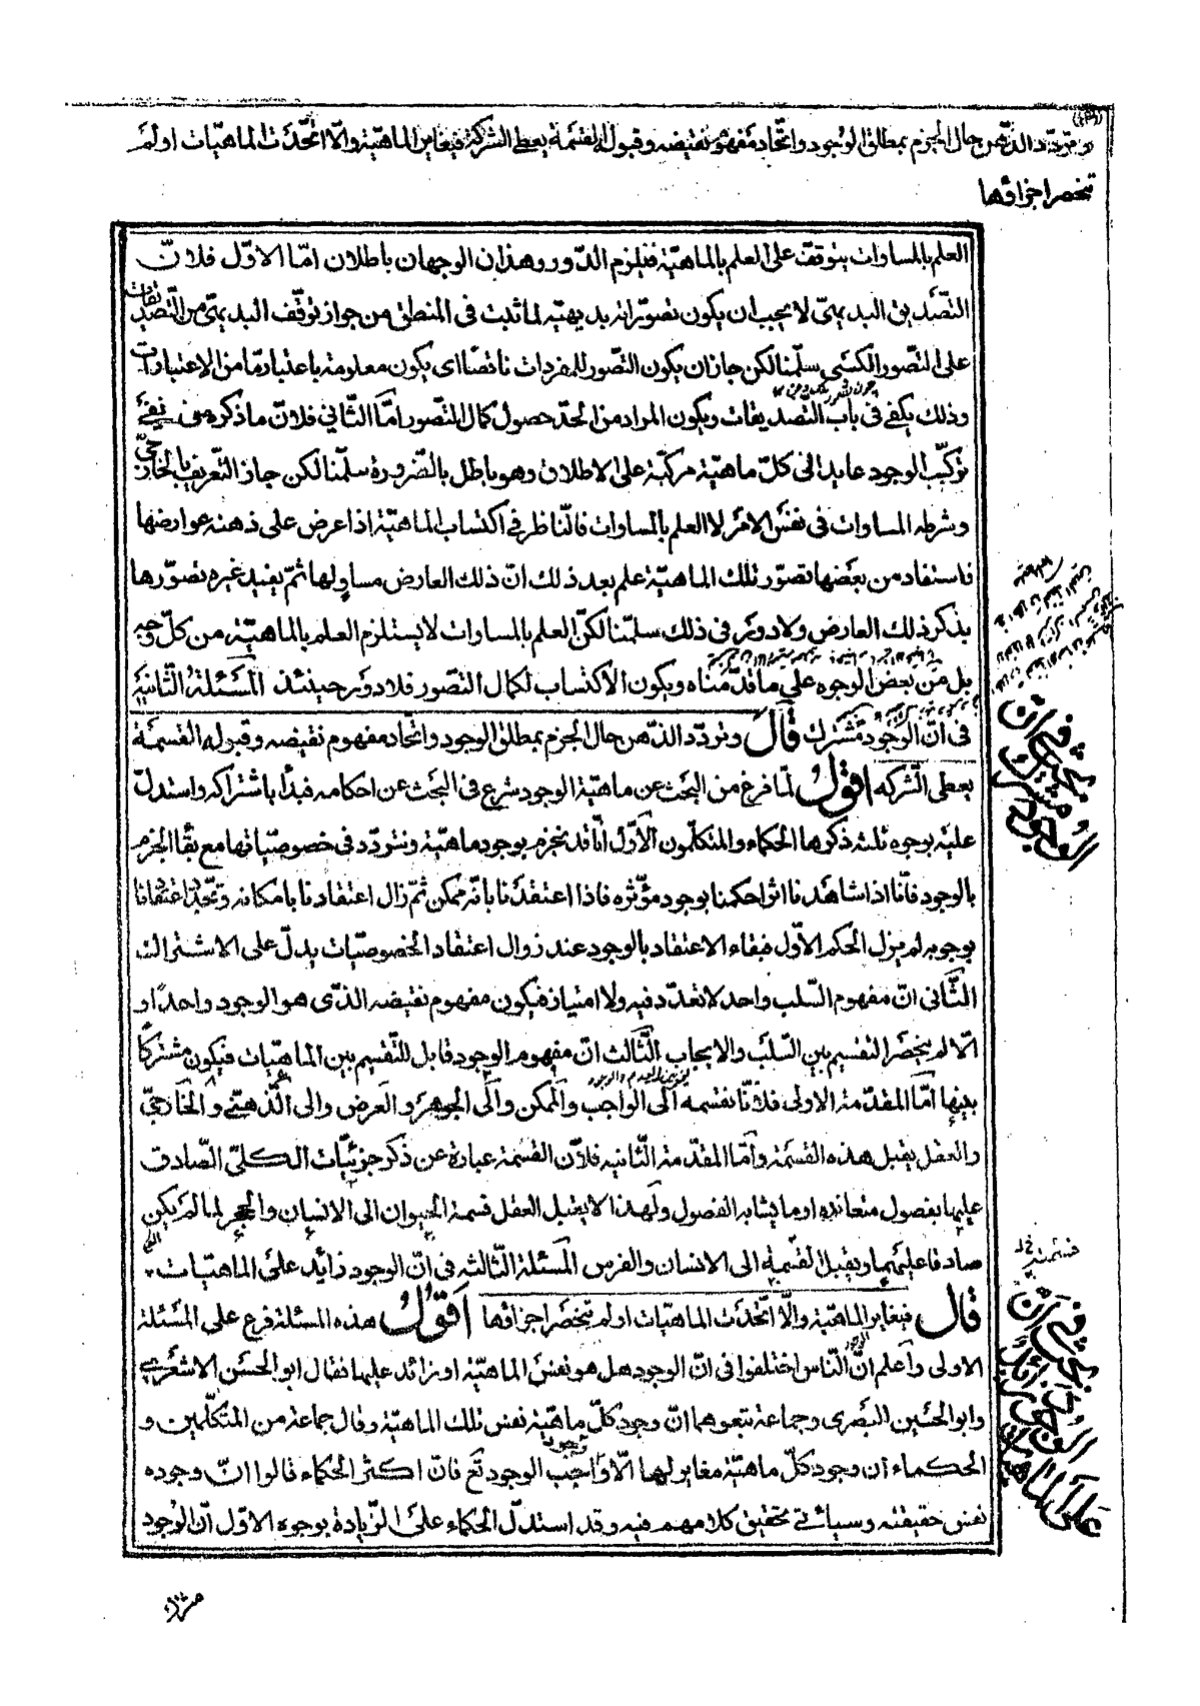 وتردّد الذّهن حال الجزم بمطلق الوجود واتّحاد مفهوم نقيضه وقبوله القسمة يعطى الشركة فيغاير الماهيّة والّا اتّحدت الماهيّات او لم
تنحصر اجزاؤها
العلم بالمساوات يتوقف على العلم بالماهيّة فيلزم الدّور وهذان الوجهان باطلان امّا الاوّل فلانّ
التّصديق البديهىّ لا يجب ان يكون تصوّراته بديهيّة لما ثبت فى المنطق من جواز توقّف البديهىّ من التّصديقات
على التّصور الكسبى سلّمنا لكن جاز ان يكون التّصور للمفردات ناقصا اى يكون معلومة باعتبار ما من الاعتبارات
وذلك يكفى فى باب التّصديقات ويكون المراد من الحدّ حصول كمال التّصور امّا الثّانى فلانّ ما ذكره فى نفى
تركيب الوجود عايد الى كلّ ماهيّة مركبّة على الاطلاق وهو باطل بالضّرورة سلّمنا لكن جاز التّعريف بالخارجىّ
وشرطه المساوات فى نفس الامر لا العلم بالمساوات فالنّاظر فى اكتساب الماهيّة اذا عرض على ذهنه عوارضها
فاستفاد من بعضها تصوّر تلك الماهيّة علم بعد ذلك انّ ذلك العارض مساو لها ثمّ يفيد غيره تصوّرها
بذكر ذلك العارض ولا دور فى ذلك سلّمنا لكنّ العلم بالمساوات لا يستلزم العلم بالماهيّة من كلّ وجه
بل من بعض الوجوه على ما قدّمناه ويكون الاكتساب لكمال التّصور فلا دور حينئذ المسئلة الثّانية
فى انّ الوجود مشترك قال وتردّد الذّهن حال الجزم بمطلق الوجود واتّحاد مفهوم نقيضه وقبوله القسمة
يعطى الشّركة اقول لمّا فرغ من البحث عن ماهيّة الوجود شرع فى البحث عن احكامه فبدأ باشتراكه واستدلّ
عليه بوجوه ثلثة ذكرها الحكماء والمتكلّمون الاوّل انّا قد نجزم بوجود ماهيّة ونتردّد فى خصوصيّاتها مع بقاء الجزم
بالوجود فانّا اذا شاهدنا اثرا حكمنا بوجود مؤثّره فاذا اعتقدنا بانّه ممكن ثمّ زال اعتقادنا بامكانه وتجدّد اعتقادنا
بوجوبه لم يزل الحكم الاوّل فبقاء الاعتقاد بالوجود عند زوال اعتقاد الخصوصيّات يدلّ على الاشتراك
الثّانى انّ مفهوم السّلب واحد لا تعدّد فيه ولا امتياز فيكون مفهوم نقيضه الذّى هو الوجود واحدا و
الّا لم ينحصر التقسيم بين السّلب والايجاب الثّالث انّ مفهوم الوجود قابل للتّقسيم بين الماهيّات فيكون مشتركا
بينها امّا المقدّمة الاولى فلانّا نقسمه الى الواجب والممكن والى الجوهر والعرض والى الذّهنىّ والخارجىّ
والعقل يقبل هذه القسمة وامّا المقدّمة الثّانية فلانّ القسمة عبارة عن ذكر جزئيّات الكلىّ الصّادق
عليها بفصول متعانده او ما يشابه الفصول ولهذا لا يقبل العقل قسمة الحيوان الى الانسان والحجر لما لم يكن
صادقا عليهما ويقبل القسمة الى الانسان والفرس المسئلة الثّالثه فى انّ الوجود زائد على الماهيّات
قال فيغاير الماهيّة والّا اتّحدت الماهيّات او لم تنحصر اجزاؤها اقول هذه المسئلة فرع على المسئلة
الاولى واعلم انّ النّاس اختلفوا فى انّ الوجود هل هو نفس الماهيّة او زائد عليها فقال ابو الحسن الاشعرى
وابو الحسين البصرى وجماعة تبعوهما انّ وجود كلّ ماهيّة نفس تلك الماهيّة وقال جماعة من المتكلّمين و
الحكماء ان وجود كلّ ماهيّة مغاير لها الّا واجب الوجود تع فانّ اكثر الحكماء قالوا انّ وجوده
نفس حقيقته وسيأتى تحقيق كلامهم فيه وقد استدلّ الحكماء على الزّيادة بوجوه الاوّل انّ الوجود
مشترك
بحث فى ان
الوجود مشترك
بحث فى ان
الوجود زائد
على الماهيات